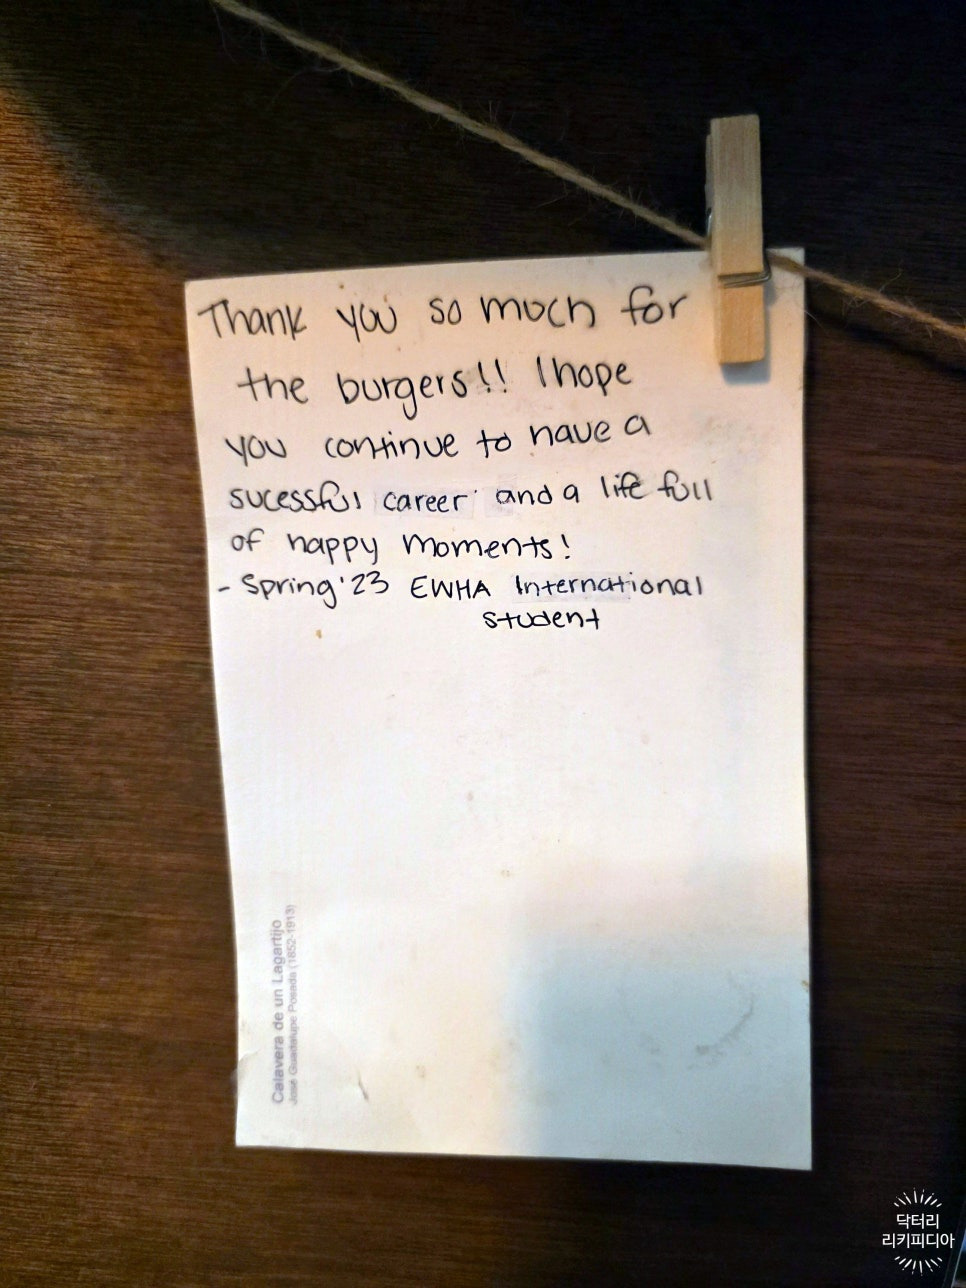 Thank you so much for
the burgers!! I hope
you continue to have a
sucessful career and a life full
of happy moments!
- Spring '23 EWHA International
student
Calavera de un Lagartijo
José Guadalupe Posada (1852-1913)
닥터리
리키피디아